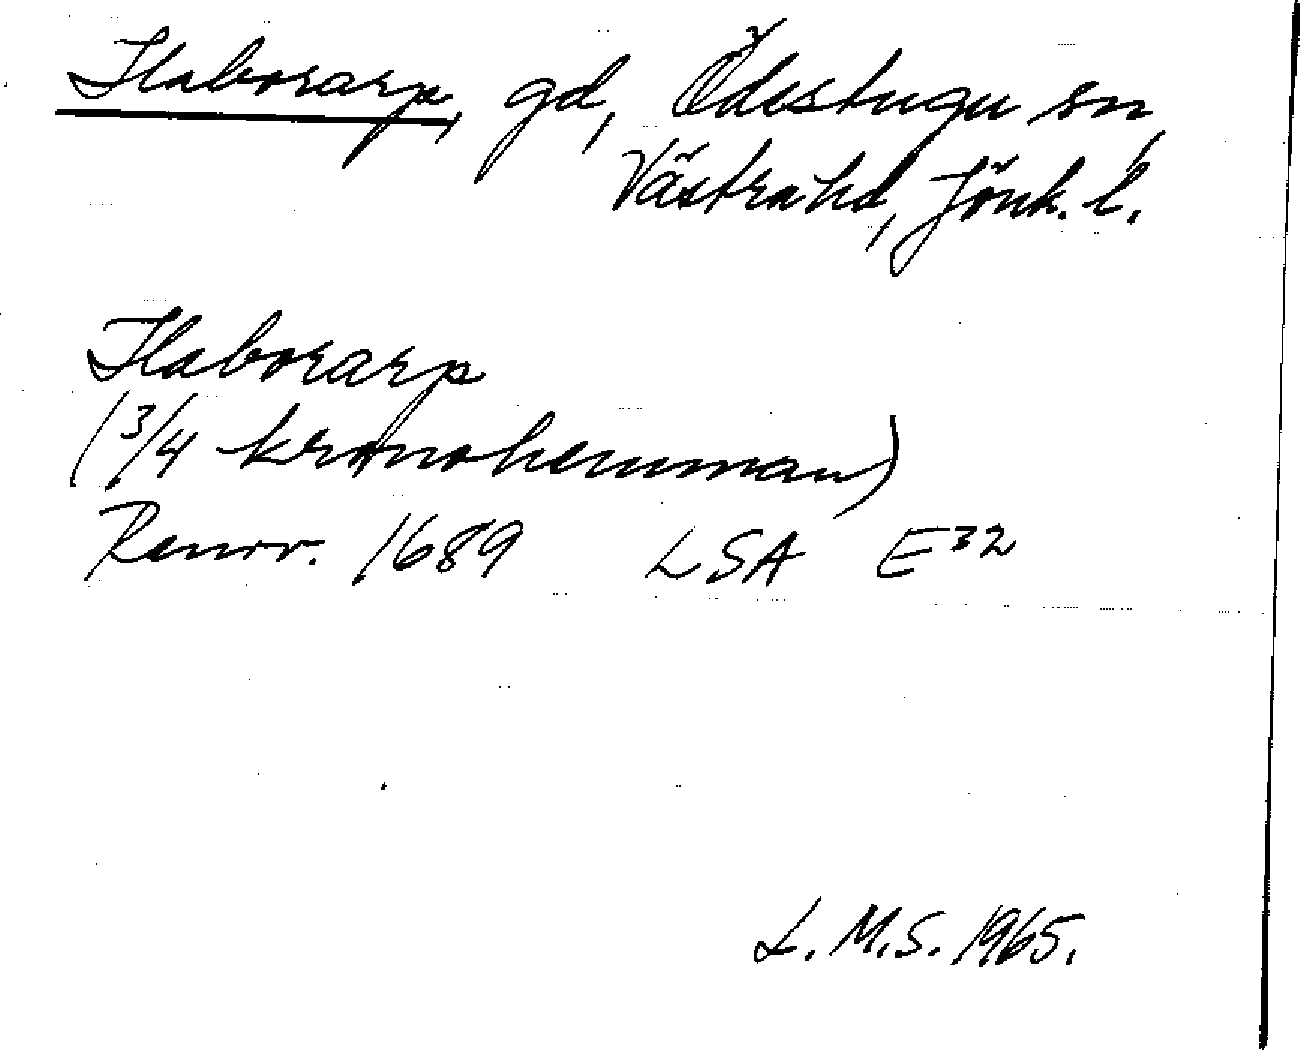 Flaborarp, gd, Ödestugu sn,
Västra hd, Jönk. l.
Flaborarp
(3/4 kronohemman)
Renov. 1689 LSA E32
L. M.S. 1965.